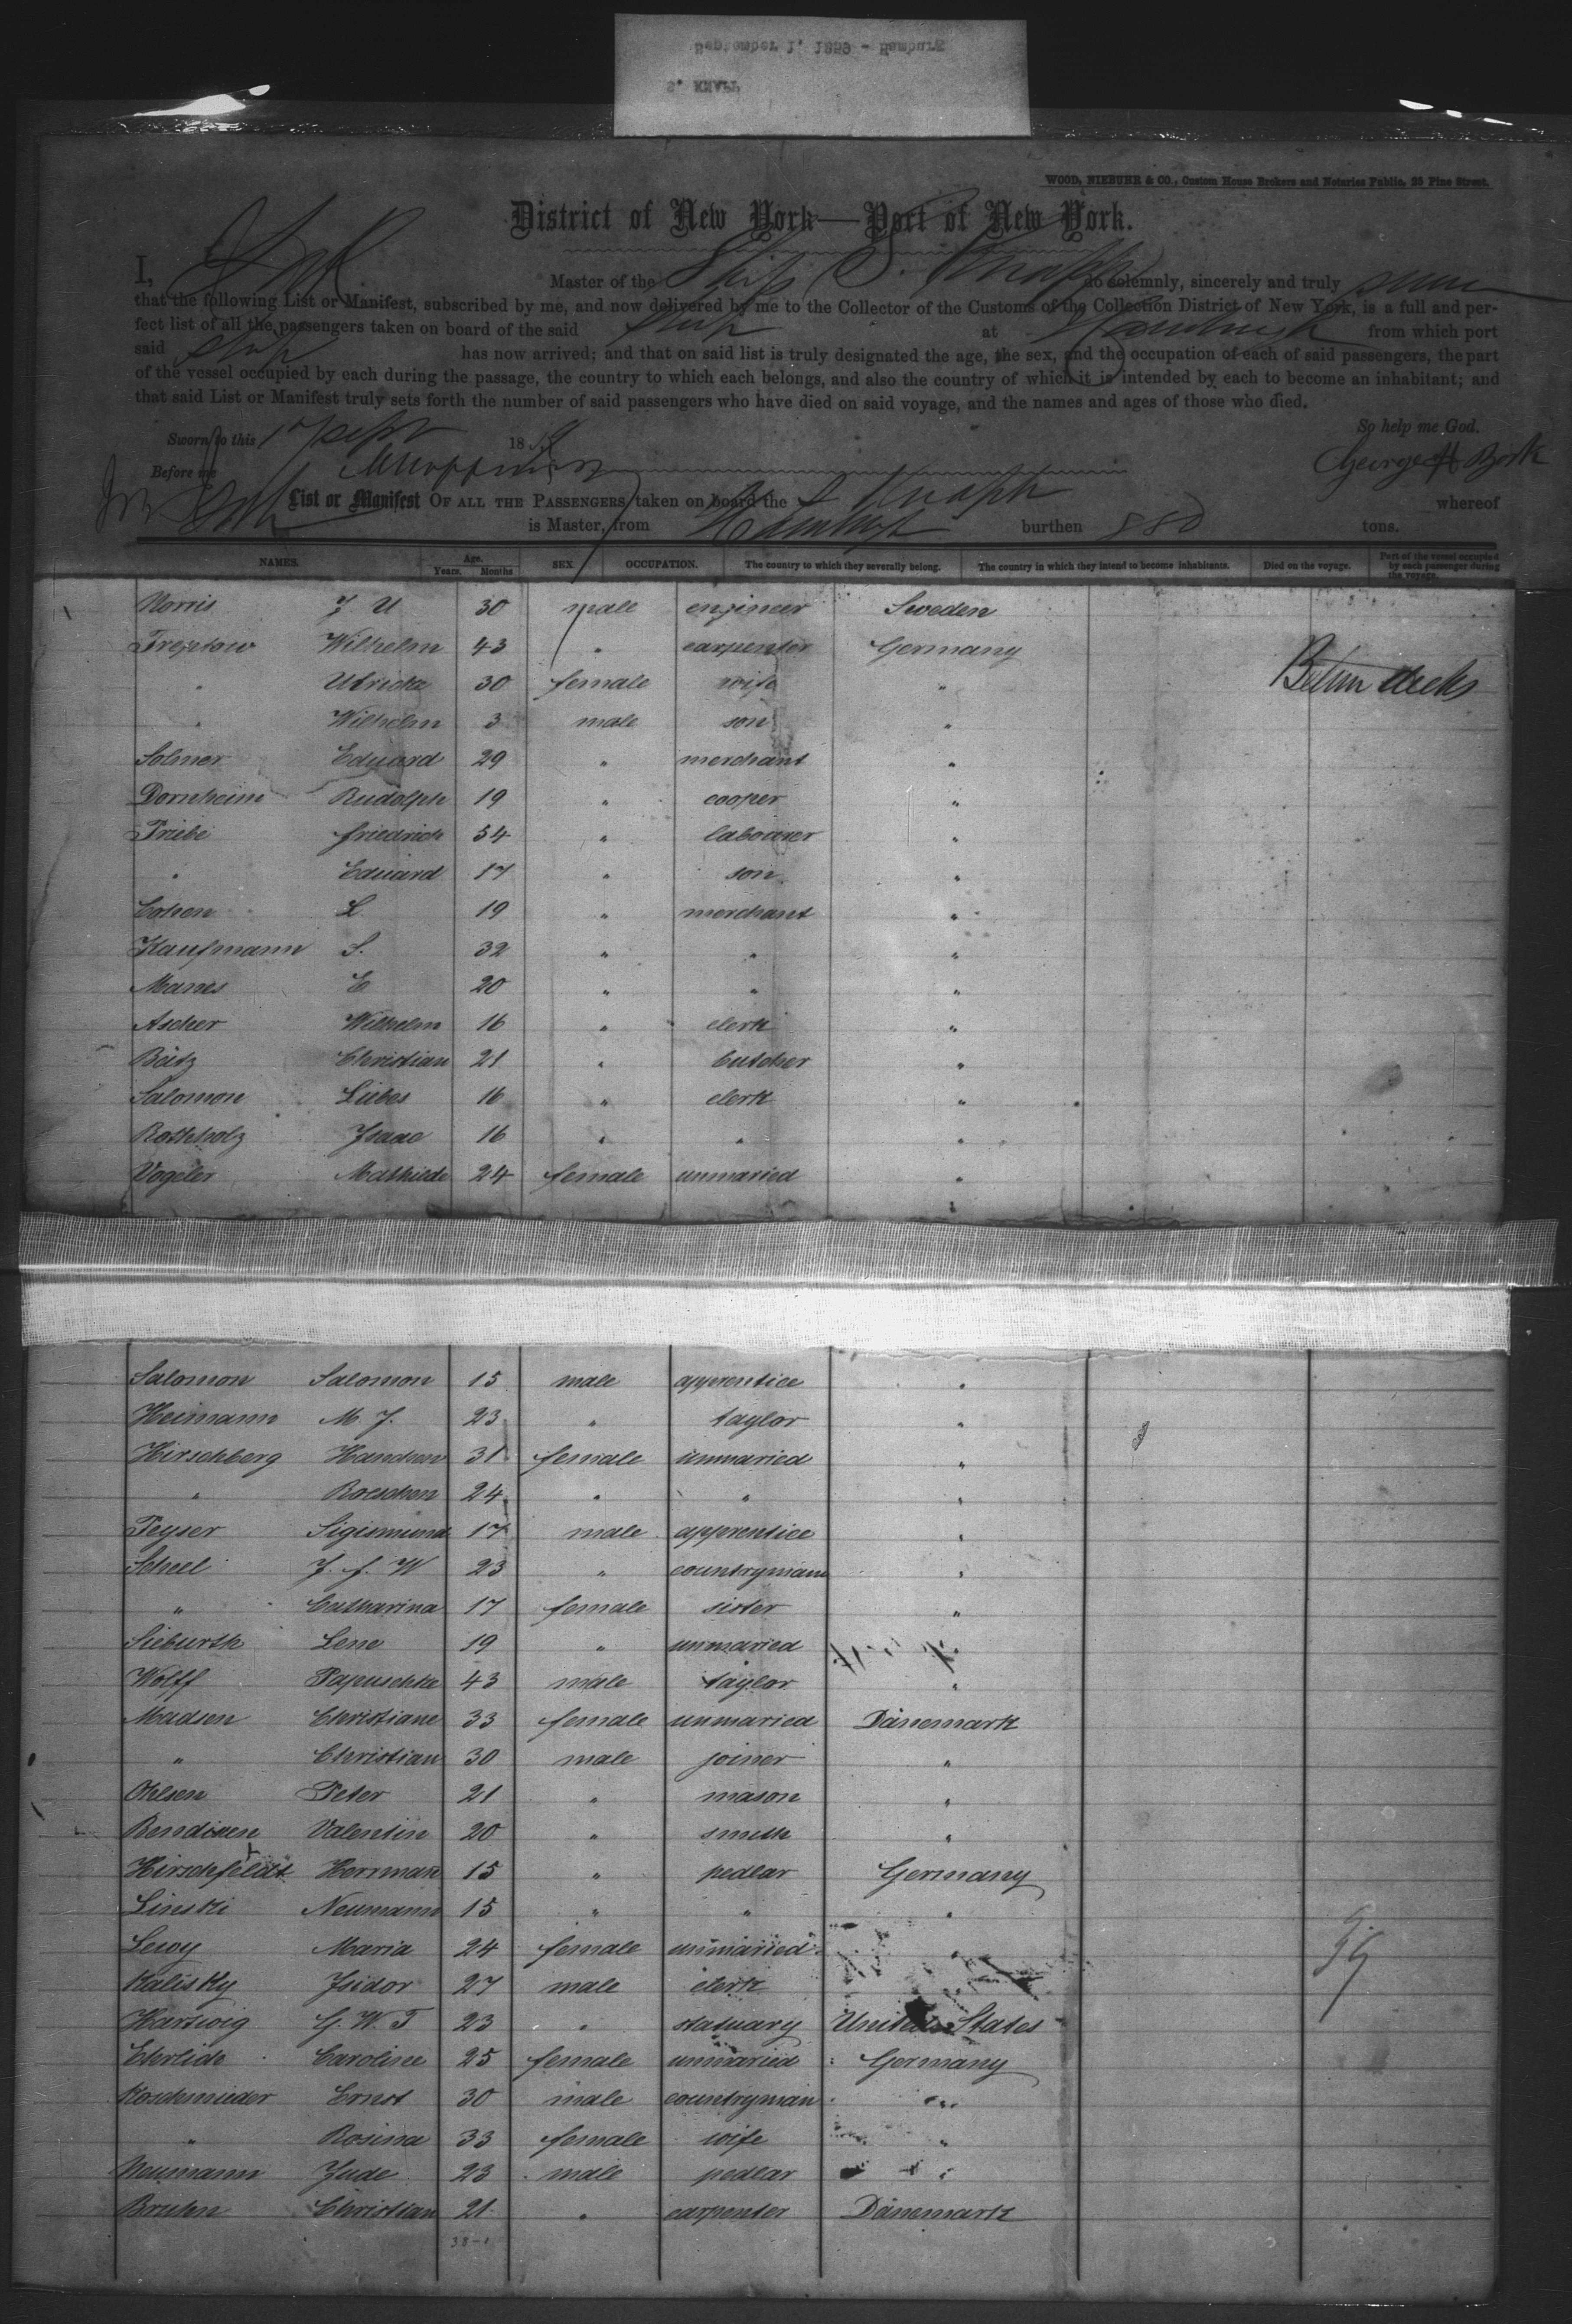 September 1, 1859 - Hamburg
S. KNAPP
WOOD, NIEBUHR & CO., Custom House Brokers and Notaries Public, 25 Pine Street.
District of New York—Port of New York.
I, Master of the Ship S. Knapp do solemnly, sincerely and truly swear
that the following List or Manifest, subscribed by me, and now delivered by me to the Collector of the Customs of the Collection District of New York, is a full and per-
fect list of all the passengers taken on board of the said Ship at Hamburgh from which port
said Ship has now arrived; and that on said list is truly designated the age, the sex, and the occupation of each of said passengers, the part
of the vessel occupied by each during the passage, the country to which each belongs, and also the country of which it is intended by each to become an inhabitant; and
that said List or Manifest truly sets forth the number of said passengers who have died on said voyage, and the names and ages of those who died.
So help me God.
Sworn to this 1 Sept 1859
Before me George H
List or Manifest OF ALL THE PASSENGERS taken on board the S Knapp whereof
is Master, from Hamburgh burthen 880 tons.
NAMES. Age. Years. Months SEX OCCUPATION. The country to which they severally belong. The country in which they intend to become inhabitants. Died on the voyage. Part of the vessel occupied by each passenger during the voyage.
Norris J. U 30 male engineer Sweden
Treptow Wilhelm 43 " carpenter Germany
" Ulricka 30 female wife " Betwn decks
" Wilhelm 3 male son "
Solmer Eduard 29 " merchant "
Dornheim Rudolph 19 " cooper "
Priebe friedrich 54 " labourer "
" Eduard 17 " son "
Cohen L. 19 " merchant "
Kaufmann S. 32 " " "
Manes E 20 " " "
Ascher Wilhelm 16 " clerk "
Bätz Christian 21 " butcher "
Salomon Liebes 16 " clerk "
Rothholz Isaac 16 " " "
Vogeler Mathilde 24 female unmaried "
Salomon Salomon 15 male apprentice "
Heimann M. J. 23 " taylor "
Hirschberg Hanchen 31 female unmaried "
" Roeschen 24 " " "
Peyser Sigismund 17 male apprentice "
Scheel J. f. W 23 " countrymann "
" Catharina 17 female sister "
Sieburth Lene 19 " unmaried "
Wolff Papuschke 43 male taylor "
Madsen Christiane 33 female unmaried Dänemark
" Christian 30 male joiner "
Ohlsen Peter 21 " mason "
Bendixen Valentin 20 " smith "
Hirschfeldt Herrman 15 " pedlar Germany
Linski Neumann 15 " " "
Lewy Maria 24 female unmaried "
Kalisky Isidor 27 male clerk
Hartwig G. W. T 23 " statuary United States
Ehrlich Caroline 25 female unmaried Germany
Koschmieder Ernst 30 male countryman "
" Rosina 33 female wife "
Neumann Jude 23 male pedlar "
Bruhn Christian 21 " carpenter Dänemark